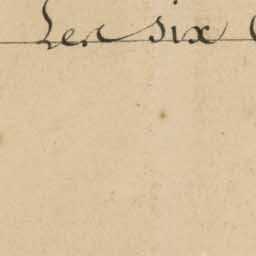 Les six